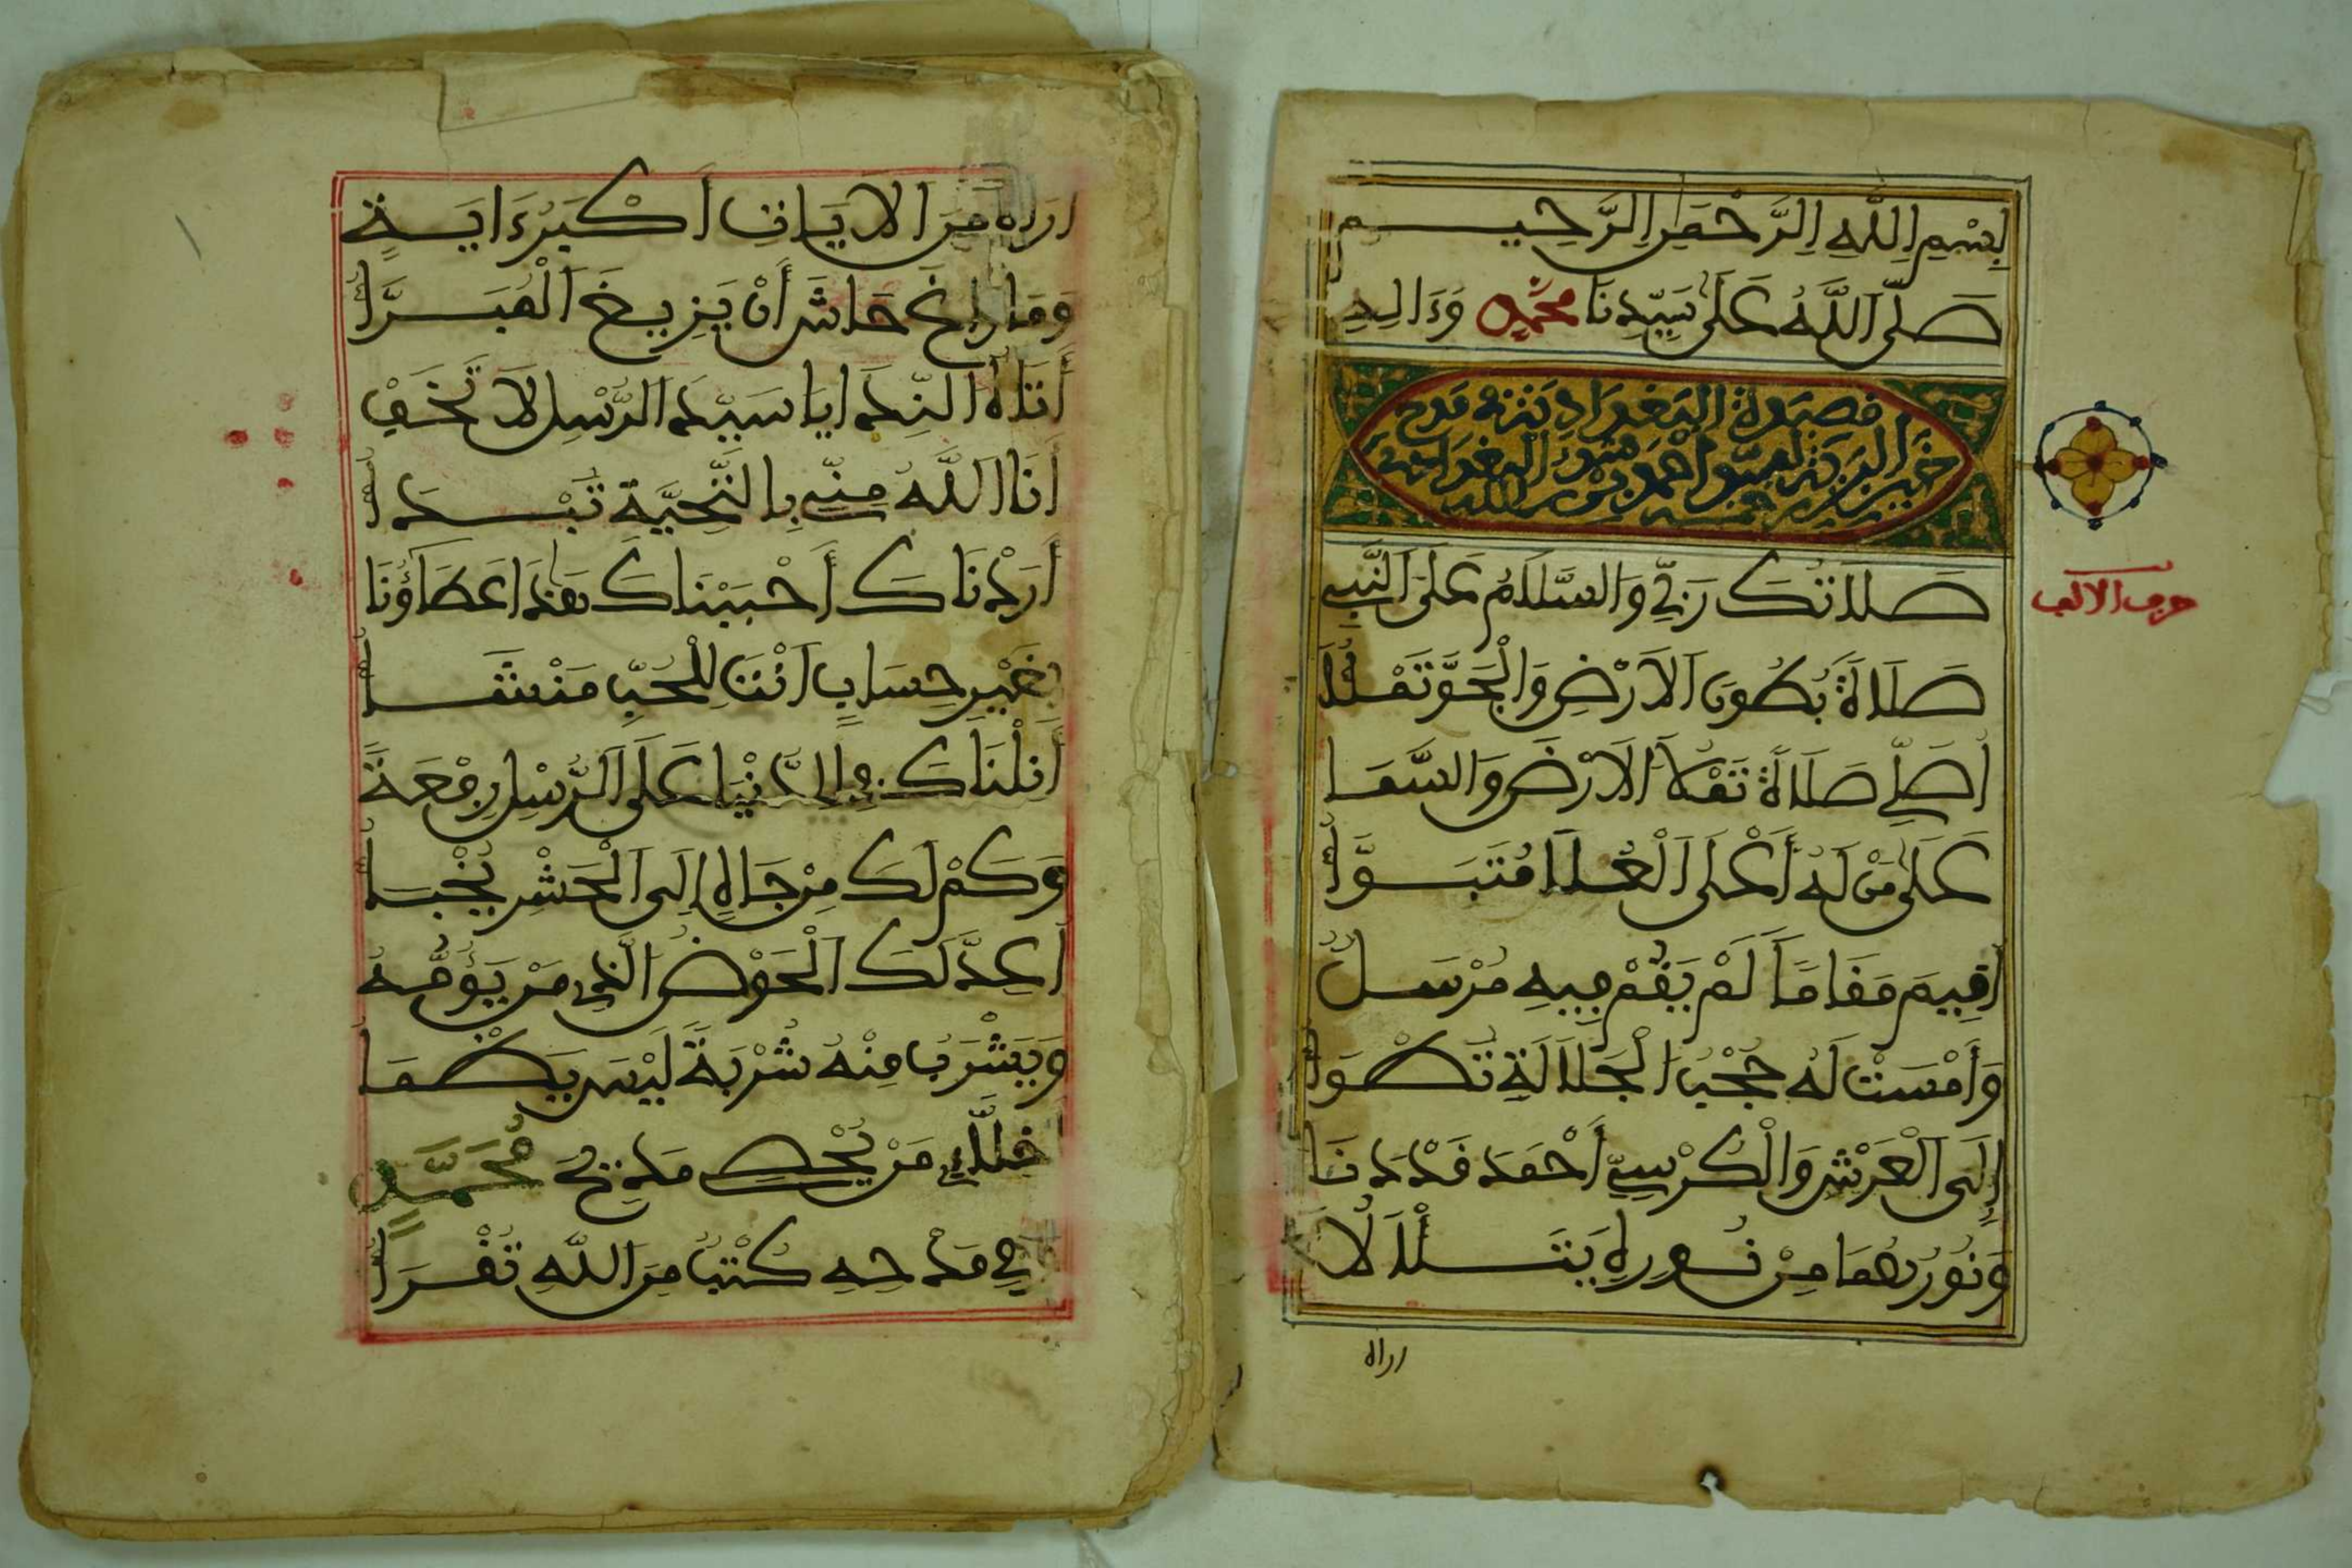 بِسْمِ اِللَّهِ اِلرَّحْمَٰنِ اِلرَّحِيمِ
صَلَّى اَللَّهُ عَلَىٰ سَيِّدِنَا مُحَمَّدٍ وَءَالِهِ
قصيدة البغدادي في مدح
خير البرية
حرف الالف
صَلَاتُكَ رَبِّي وَالسَّلَامُ عَلَى اَلنَّبِي
صَلَاةً بُطُونَ اَلَارْضِ وَالْجَوَّ تَمْلَأُ
أُصَلِّي صَلَاةً تَمْلَأُ اَلَارْضَ وَالسَّمَا
عَلَىٰ مَنْ لَهُ أَعْلَى اَلْعُلَا مُتَبَوَّأُ
أُقِيمَ مَقَامًا لَمْ يَقُمْ فِيهِ مُرْسَلٌ
وَأَمْسَتْ لَهُ حُجْبُ اَلْجَلَالَةِ تُطْوَأُ
إِلَى اَلْعَرْشِ وَالْكُرْسِيِّ أَحْمَدُ قَدْ دَنَا
وَنُورُهُمَا مِنْ نُورِهِ يَتَلَأْلَأُ
اراه
اراه مِنَ اَلَايَاتِ أَكْبَرَ ءَايَةٍ
وَمَا زَاغَ حَاشَى أَنْ يَزِيغَ اَلْمُبَرَّأُ
أَتَاهُ اَلنِّدَا يَا سَيِّدَ اَلرُّسْلِ لَا تَخَفْ
أَنَا اَللَّهُ مِنِّي بِالتَّحِيَّةِ تُبْدَأُ
أَرَدْنَاكَ أَحْبَبْنَاكَ هَٰذَا عَطَاؤُنَا
بِغَيْرِ حِسَابٍ أَنْتَ لِلْحُبِّ مَنْشَأُ
أَنَلْنَاكَ فِي الدُّنْيَا عَلَى اَلرُّسْلِ رِفْعَةً
وَكَمْ لَكَ مِنْ جَاهٍ إِلَى اَلْحَشْرِ يُخْبَأُ
أُعِدَّ لَكَ اَلْحَوْضُ اَلَّذِي مَنْ يَؤُمُّهُ
وَيَشْرَبُ مِنْهُ شُرْبَةً لَيْسَ يَظْمَأُ
أَخِلَّايَ مَنْ يُحْصِي مَدِيحَ مُحَمَّدٍ
فِي مَدْحِهِ كُتْبٌ مِنَ اَللَّهِ تُقْرَأُ